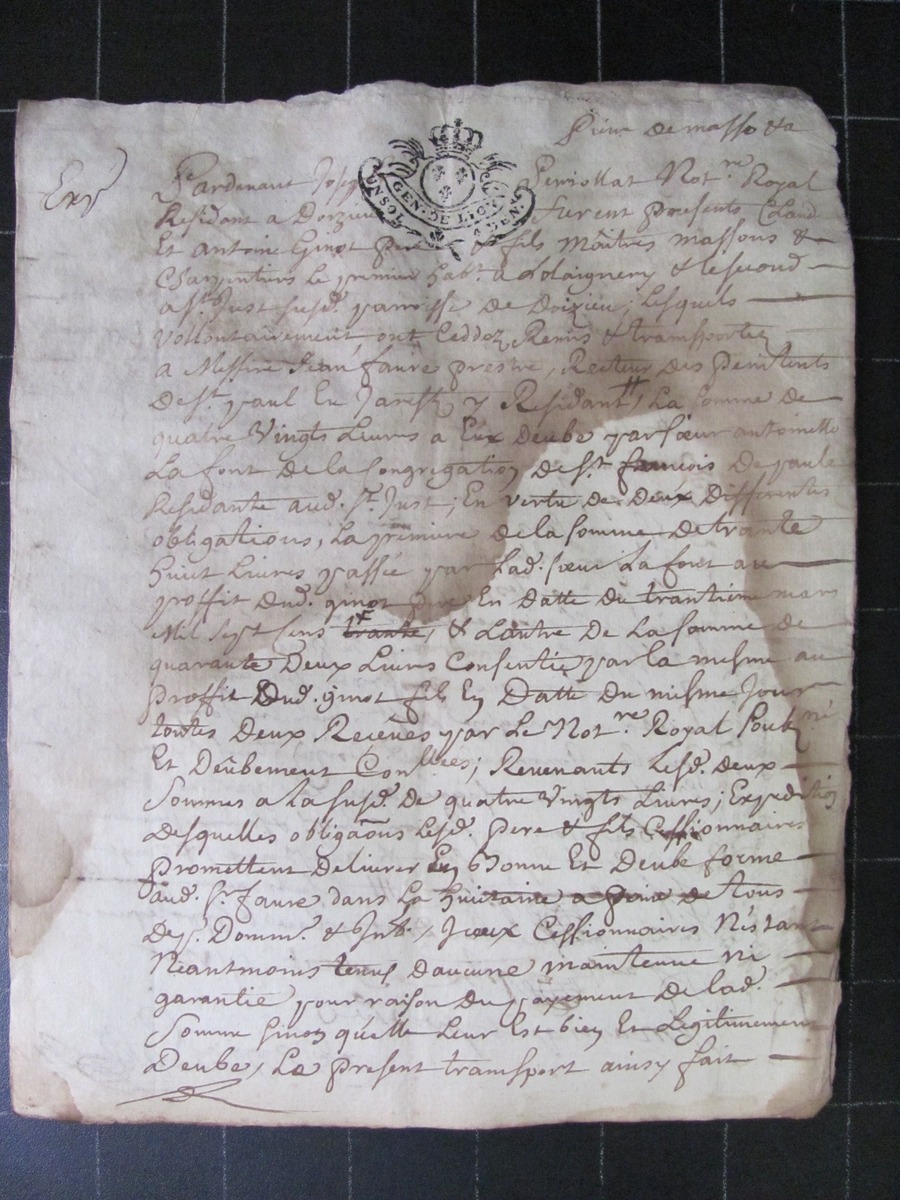 Exp
Pardevant Joseph Penriollat Not.re Royal
GEN. DE LION
UN SOL
A DEN.
Residant a Doizieu furent presents Claud
Et antoine Ginot pere & fils Maitres massons &
Charpentiers le premier hab.t a & le second
a S.t Just susd. parroisse de Doizieu; Lesquels
Vollontairement ont Ceddez, Remis & transportez
a Messire Jean faure prestre, Recteur des Penitents
de S.t paul En Jarest, y Residant, La somme de
quatre Vingts Livres a Eux Deube par sœur antoinette
La font de la Congregation de S.t francois de paule
Residante aud. S.t Just; En vertu de Deux Differentes
obligations, La premiere de la somme de trante
huit Livres passée par Lad. sœur La font au
proffit dud. ginot pere En Datte du trantième mars
Mil sept Cens trante, & L'autre De La somme de
quarante Deux Livres Consentie par la mesme au
proffit Dud. ginot fils En Datte du mesme Jour
toutes Deux Receües par Le Not.re Royal
Et Deübement Con.llées; Revenants Lesd. deux
Sommes a La susd. De quatre Vingts Livres; Expedition
desquelles obligaõns Lesd. pere & fils Cessionnaires
promettent Delivrer En bonne Et Deube forme
aud. S.r faure dans La huitaine a peine de tous
Desp. Domm. & Int., Iceux Cessionnaires N'estant
Neantmoins tenus d'aucune maintenue Ni
garantie pour raison Du payement de lad.
Somme sinon qu'elle Leur Est bien Et Legitimement
Deube, Le present transport ainsy fait